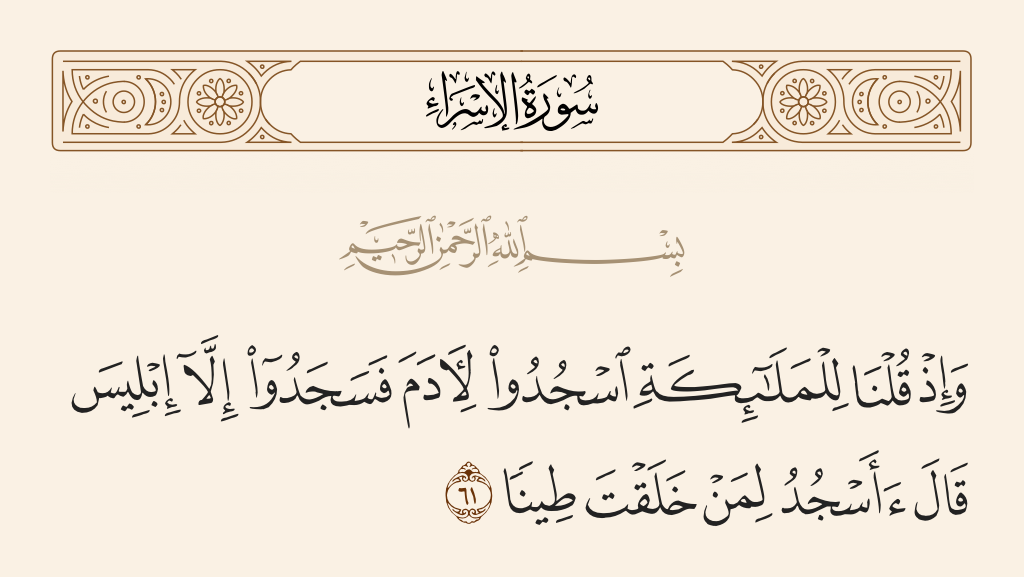 سُورَةُ الإِسْرَاءِ
بِسْمِ ٱللَّهِ ٱلرَّحْمَٰنِ ٱلرَّحِيمِ
وَإِذْ قُلْنَا لِلْمَلَـٰٓئِكَةِ ٱسْجُدُوا۟ لِـَٔادَمَ فَسَجَدُوٓا۟ إِلَّآ إِبْلِيسَ
قَالَ ءَأَسْجُدُ لِمَنْ خَلَقْتَ طِينًا ٦١